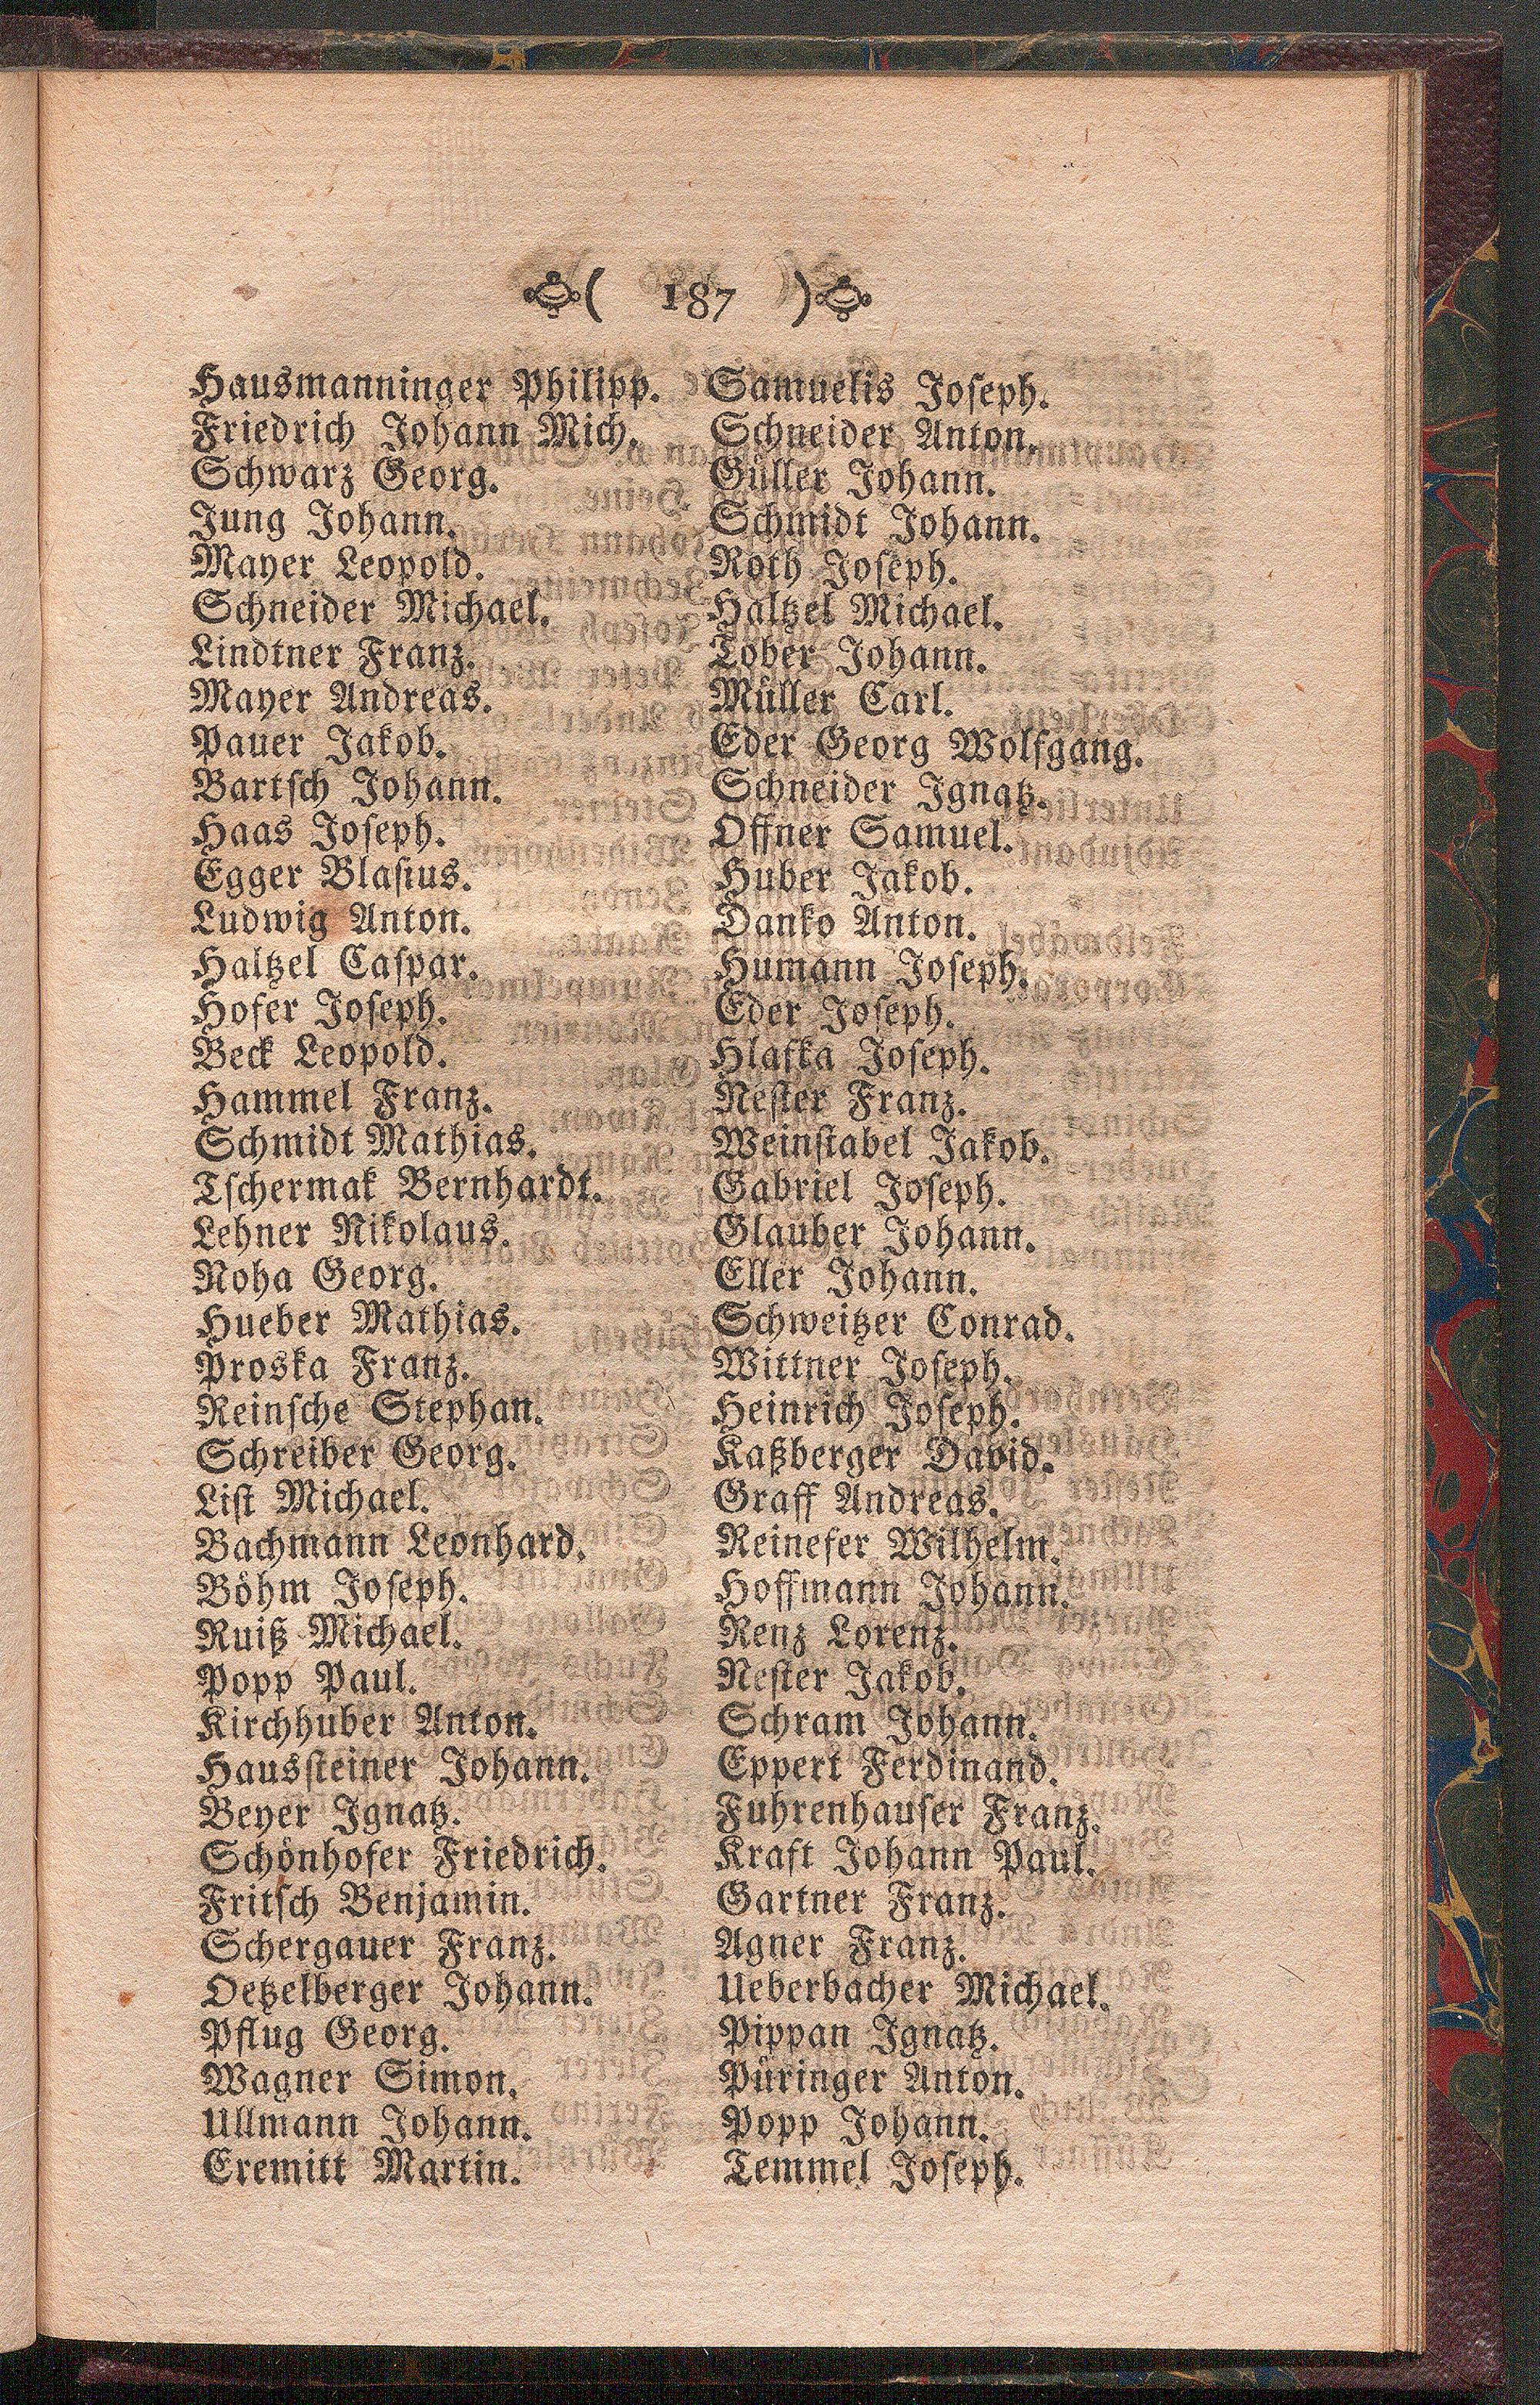 ( 187 )
Hausmanninger Philipp.
Friedrich Johann Mich.
Schwarz Georg.
Jung Johann.
Mayer Leopold.
Schneider Michael.
Lindtner Franz.
Mayer Andreas.
Pauer Jakob.
Bartſch Johann.
Haas Joſeph.
Egger Blaſius.
Ludwig Anton.
Haltzel Caſpar.
Hofer Joſeph.
Beck Leopold.
Hammel Franz.
Schmidt Mathias.
Tſchermak Bernhardt.
Lehner Nikolaus.
Noha Georg.
Hueber Mathias.
Proska Franz.
Reinſche Stephan.
Schreiber Georg.
Liſt Michael.
Bachmann Leonhard.
Böhm Joſeph.
Ruiß Michael.
Popp Paul.
Kirchhuber Anton.
Hausſteiner Johann.
Beyer Ignatz.
Schönhofer Friedrich.
Fritſch Benjamin.
Schergauer Franz.
Oetzelberger Johann.
Pflug Georg.
Wagner Simon.
Ullmann Johann.
Eremitt Martin.
Samuelis Joſeph.
Schneider Anton.
Güller Johann.
Schmidt Johann.
Roth Joſeph.
Haltzel Michael.
Tober Johann.
Müller Carl.
Eder Georg Wolfgang.
Schneider Ignatz.
Offner Samuel.
Huber Jakob.
Danko Anton.
Humann Joſeph.
Eder Joſeph.
Hlafka Joſeph.
Neſter Franz.
Weinſtabel Jakob.
Gabriel Joſeph.
Glauber Johann.
Eller Johann.
Schweitzer Conrad.
Wittner Joſeph.
Heinrich Joſeph.
Kaßberger David.
Graff Andreas.
Reinefer Wilhelm.
Hoffmann Johann.
Renz Lorenz.
Neſter Jakob.
Schram Johann.
Eppert Ferdinand.
Fuhrenhauſer Franz.
Kraft Johann Paul.
Gartner Franz.
Agner Franz.
Ueberbacher Michael.
Pippan Ignatz.
Püringer Anton.
Popp Johann.
Temmel Joſeph.